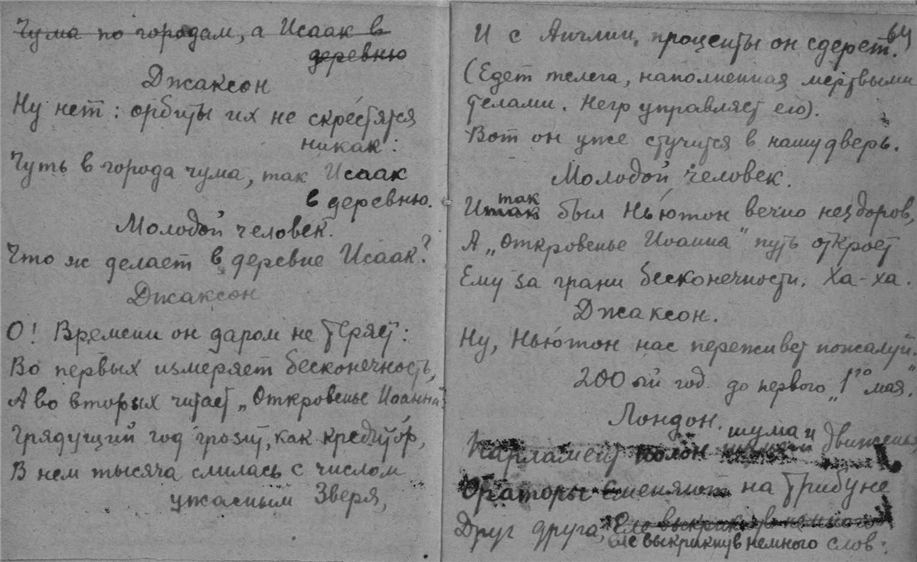 Чума по городам, а Исаак в
деревню
Джаксон
Ну нет: орбиты их не скрестятся
никак:
Чуть в города чума, так Исаак
в деревню.
Молодой человек.
Что ж делает в деревне Исаак?
Джаксон
О! Времени он даром не теряет:
Во первых измеряет бесконечность,
А во вторых читает „Откровенье Иоанна"
Грядущий год грозит, как кредитор,
В нем тысяча слилась с числом
ужасным Зверя,
64
И с Англии, проценты он сдерет.
(Едет телега, наполненная мертвыми
телами. Негр управляет ею).
Вот он уже стучится в нашу дверь.
Молодой человек.
И так был Нью́тон вечно нездоров,
А „Откровенье Иоанна" путь откроет
Ему за грани бесконечности. Ха-ха.
Джаксон.
Ну, Нью́тон нас переживет пожалуй.
200 ый год до первого „1го мая"
Лондон.
Парламент полон шума и движенья
Ораторы сменяют на трибуне
Друг друга, Еле выкрикнув немного
еле выкрикнув немного слов: